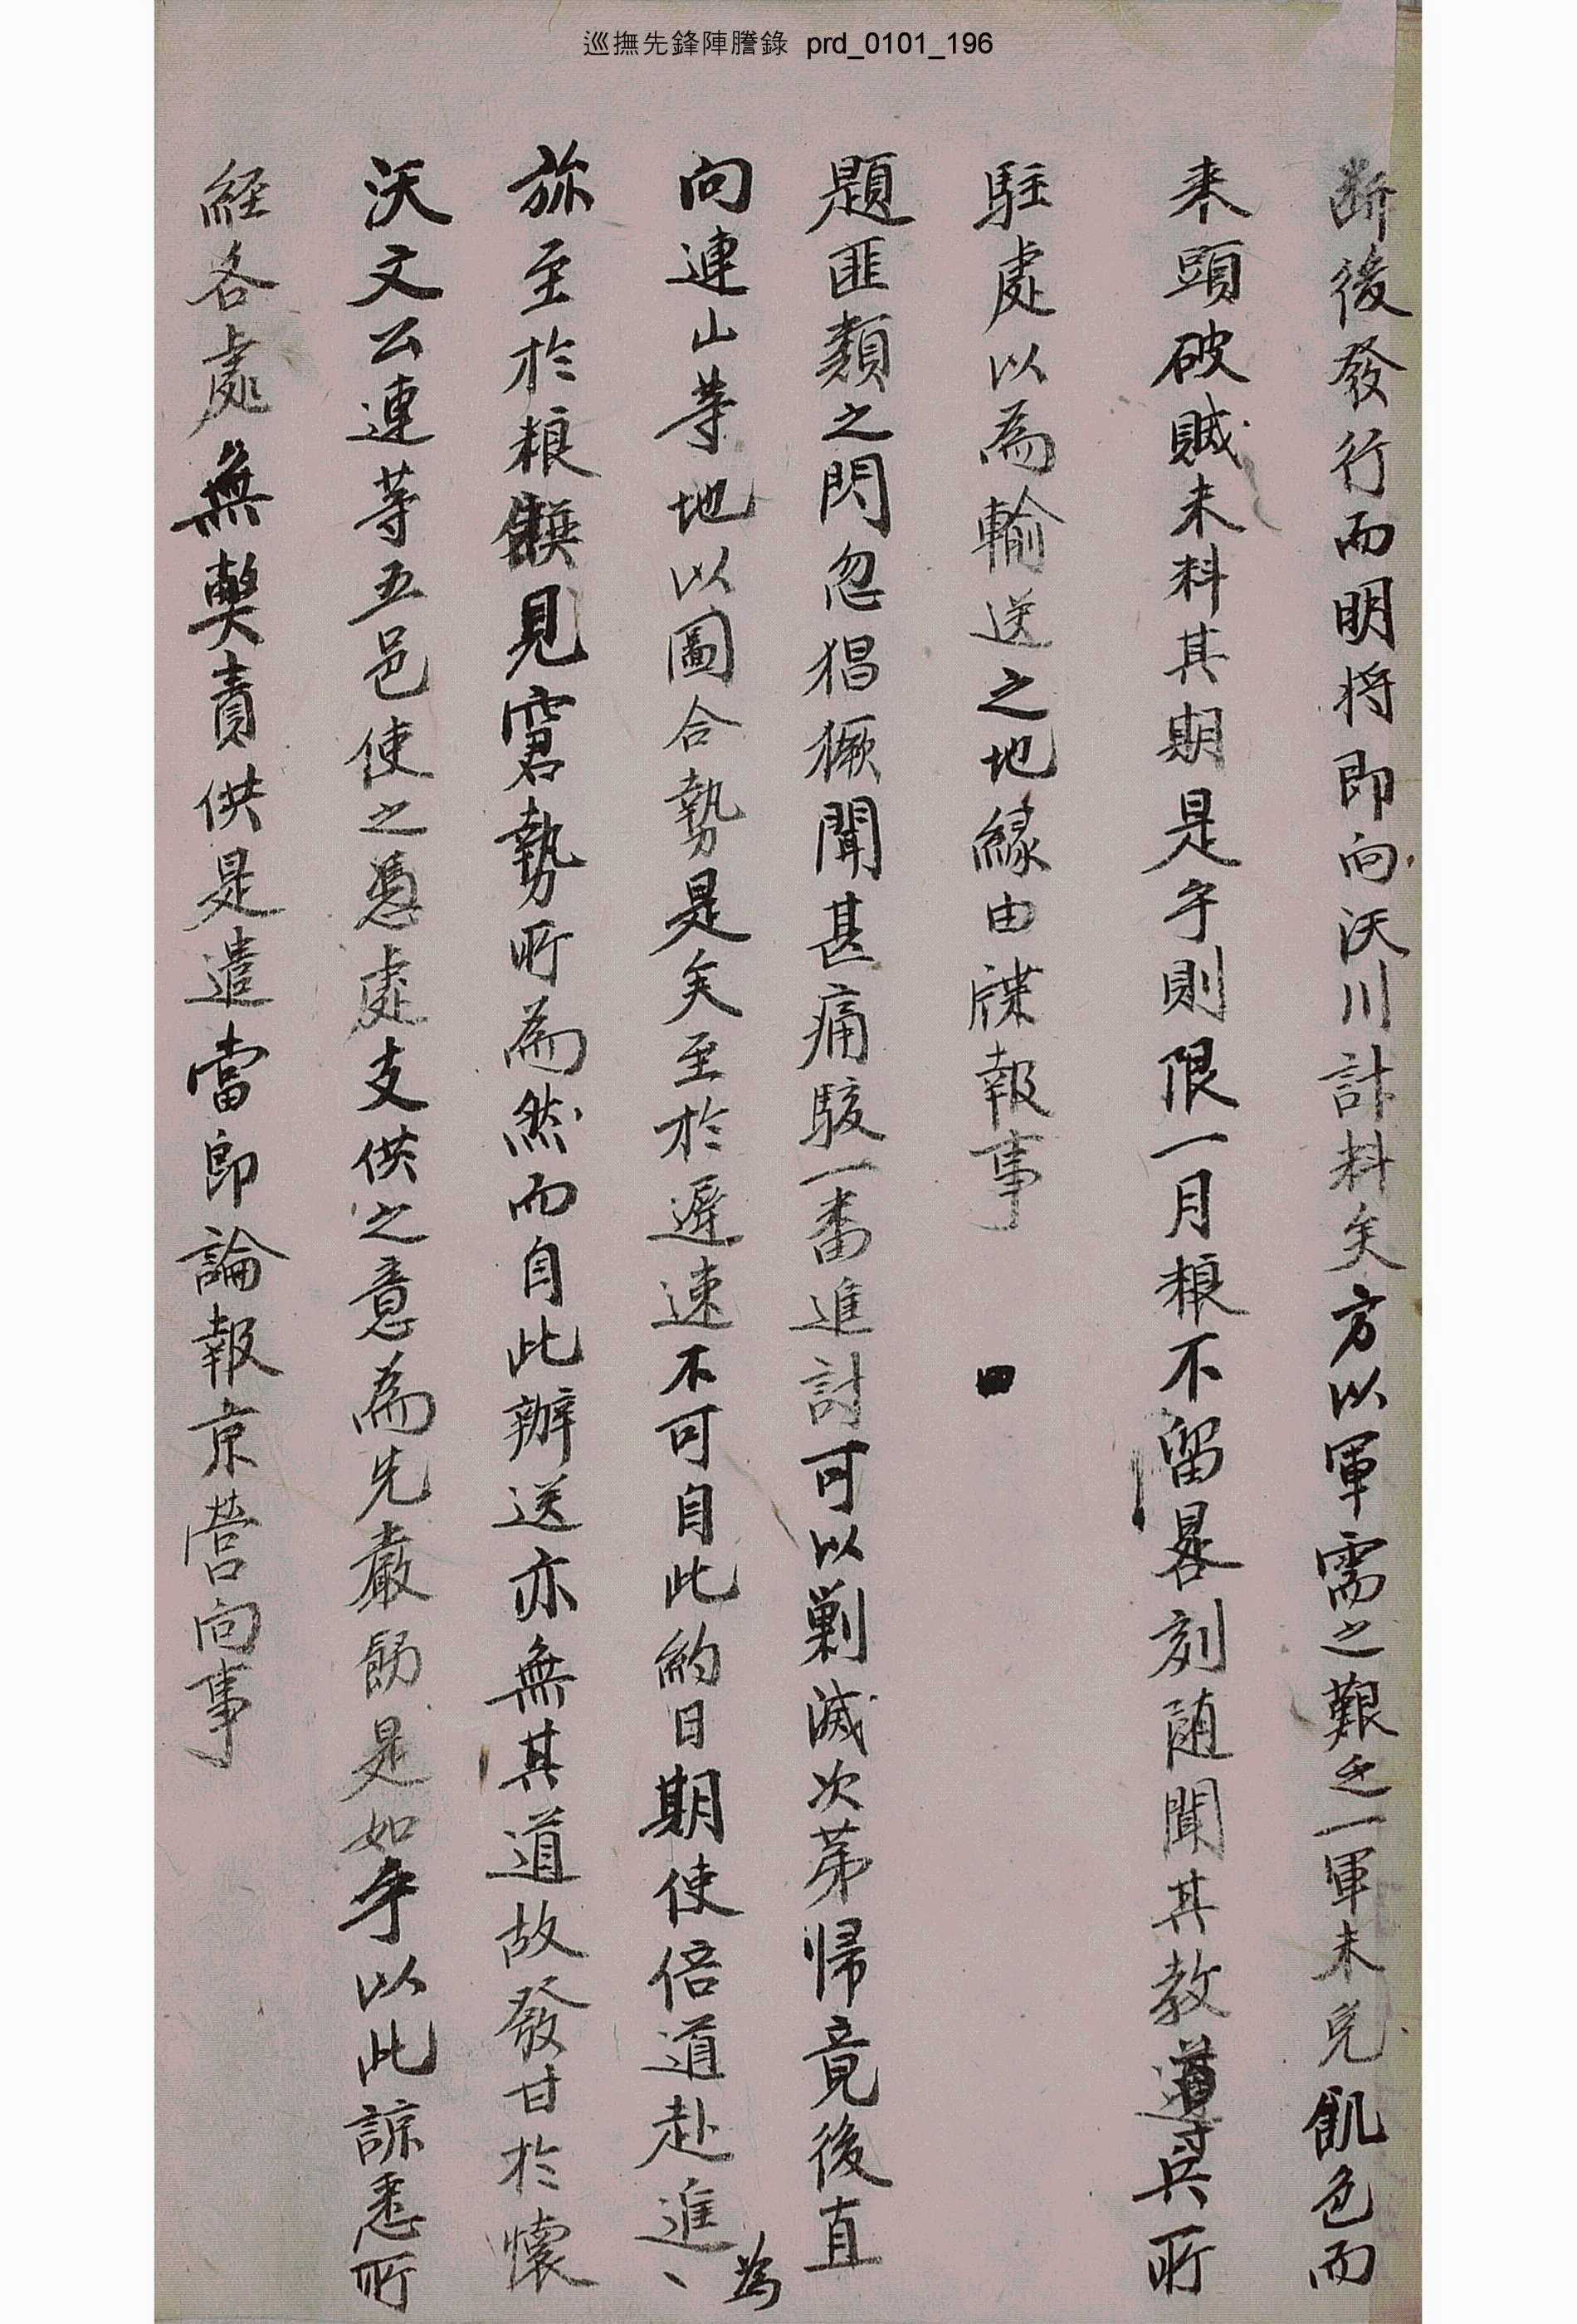 巡撫先鋒陣謄錄 prd_0101_196
断後發行而明将即向沃川計料矣方以軍需之艱乏一軍未免飢色而
来頭破贼未料其期是乎則限一月粮不留晷刻随聞其教導兵所
駐處以為輸送之地緣由牒報事
題匪類之閃忽猖獗聞甚痛駭一番進討可以剿滅次苐歸竟後直
向連山等地以圖合勢是矣至於遲速不可自此約日期使倍道赴進為
旀至於粮饌見窘勢所為然而自此辦送亦無其道故發甘於懷
沃文公連等五邑使之憑處支供之意為先嚴飭是如乎以此諒悉所
經各處無獘責供是遣當郎論報京营向事